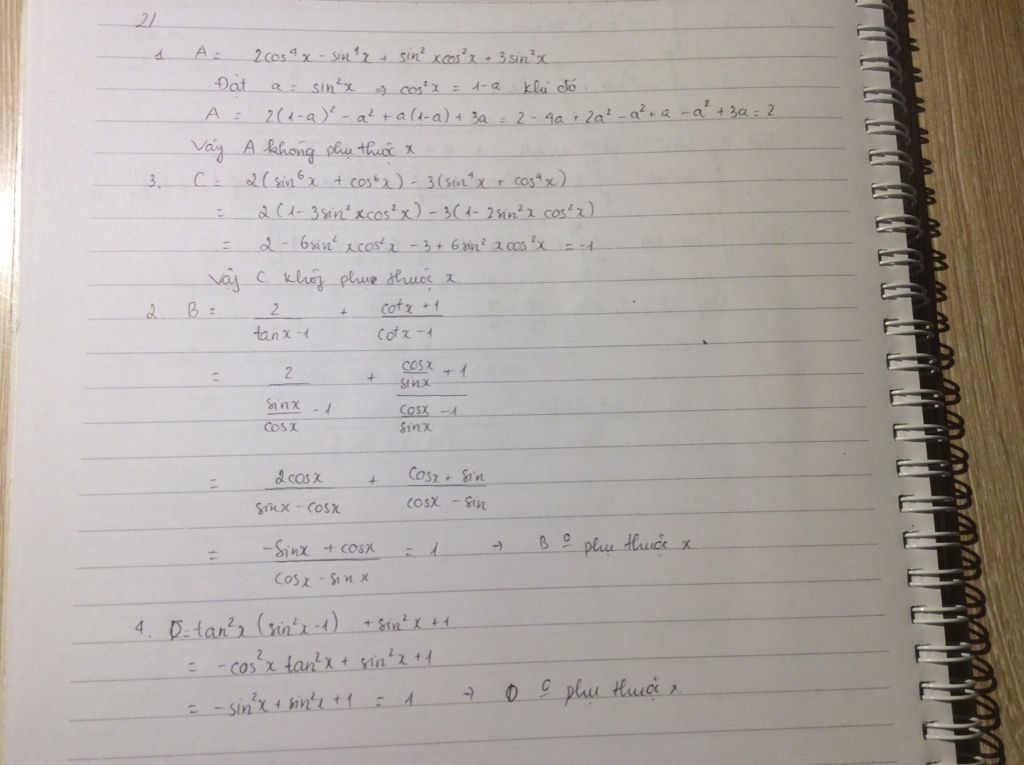 21
1. A = 2cos⁴x - sin⁴x + sin²xcos²x + 3sin²x
Đặt a = sin²x ⇒ cos²x = 1-a khi đó:
A = 2(1-a)² - a² + a(1-a) + 3a = 2 - 4a + 2a² - a² + a - a² + 3a = 2
Vậy A không phụ thuộc x
3. C = 2(sin⁶x + cos⁶x) - 3(sin⁴x + cos⁴x)
= 2(1 - 3sin²xcos²x) - 3(1 - 2sin²x cos²x)
= 2 - 6sin²xcos²x - 3 + 6sin²xcos²x = -1
Vậy C khôj phụ thuộc x
2. B = 2/(tanx - 1) + (cotx + 1)/(cotx - 1)
= 2/(sinx/cosx - 1) + (cosx/sinx + 1)/(cosx/sinx - 1)
= 2cosx/(sinx - cosx) + (cosx + sin)/(cosx - sin)
= (-sinx + cosx)/(cosx - sinx) = 1 → B phụ thuộc x
4. D = tan²x (sin²x - 1) + sin²x + 1
= -cos²x tan²x + sin²x + 1
= -sin²x + sin²x + 1 = 1 → D phụ thuộc x.